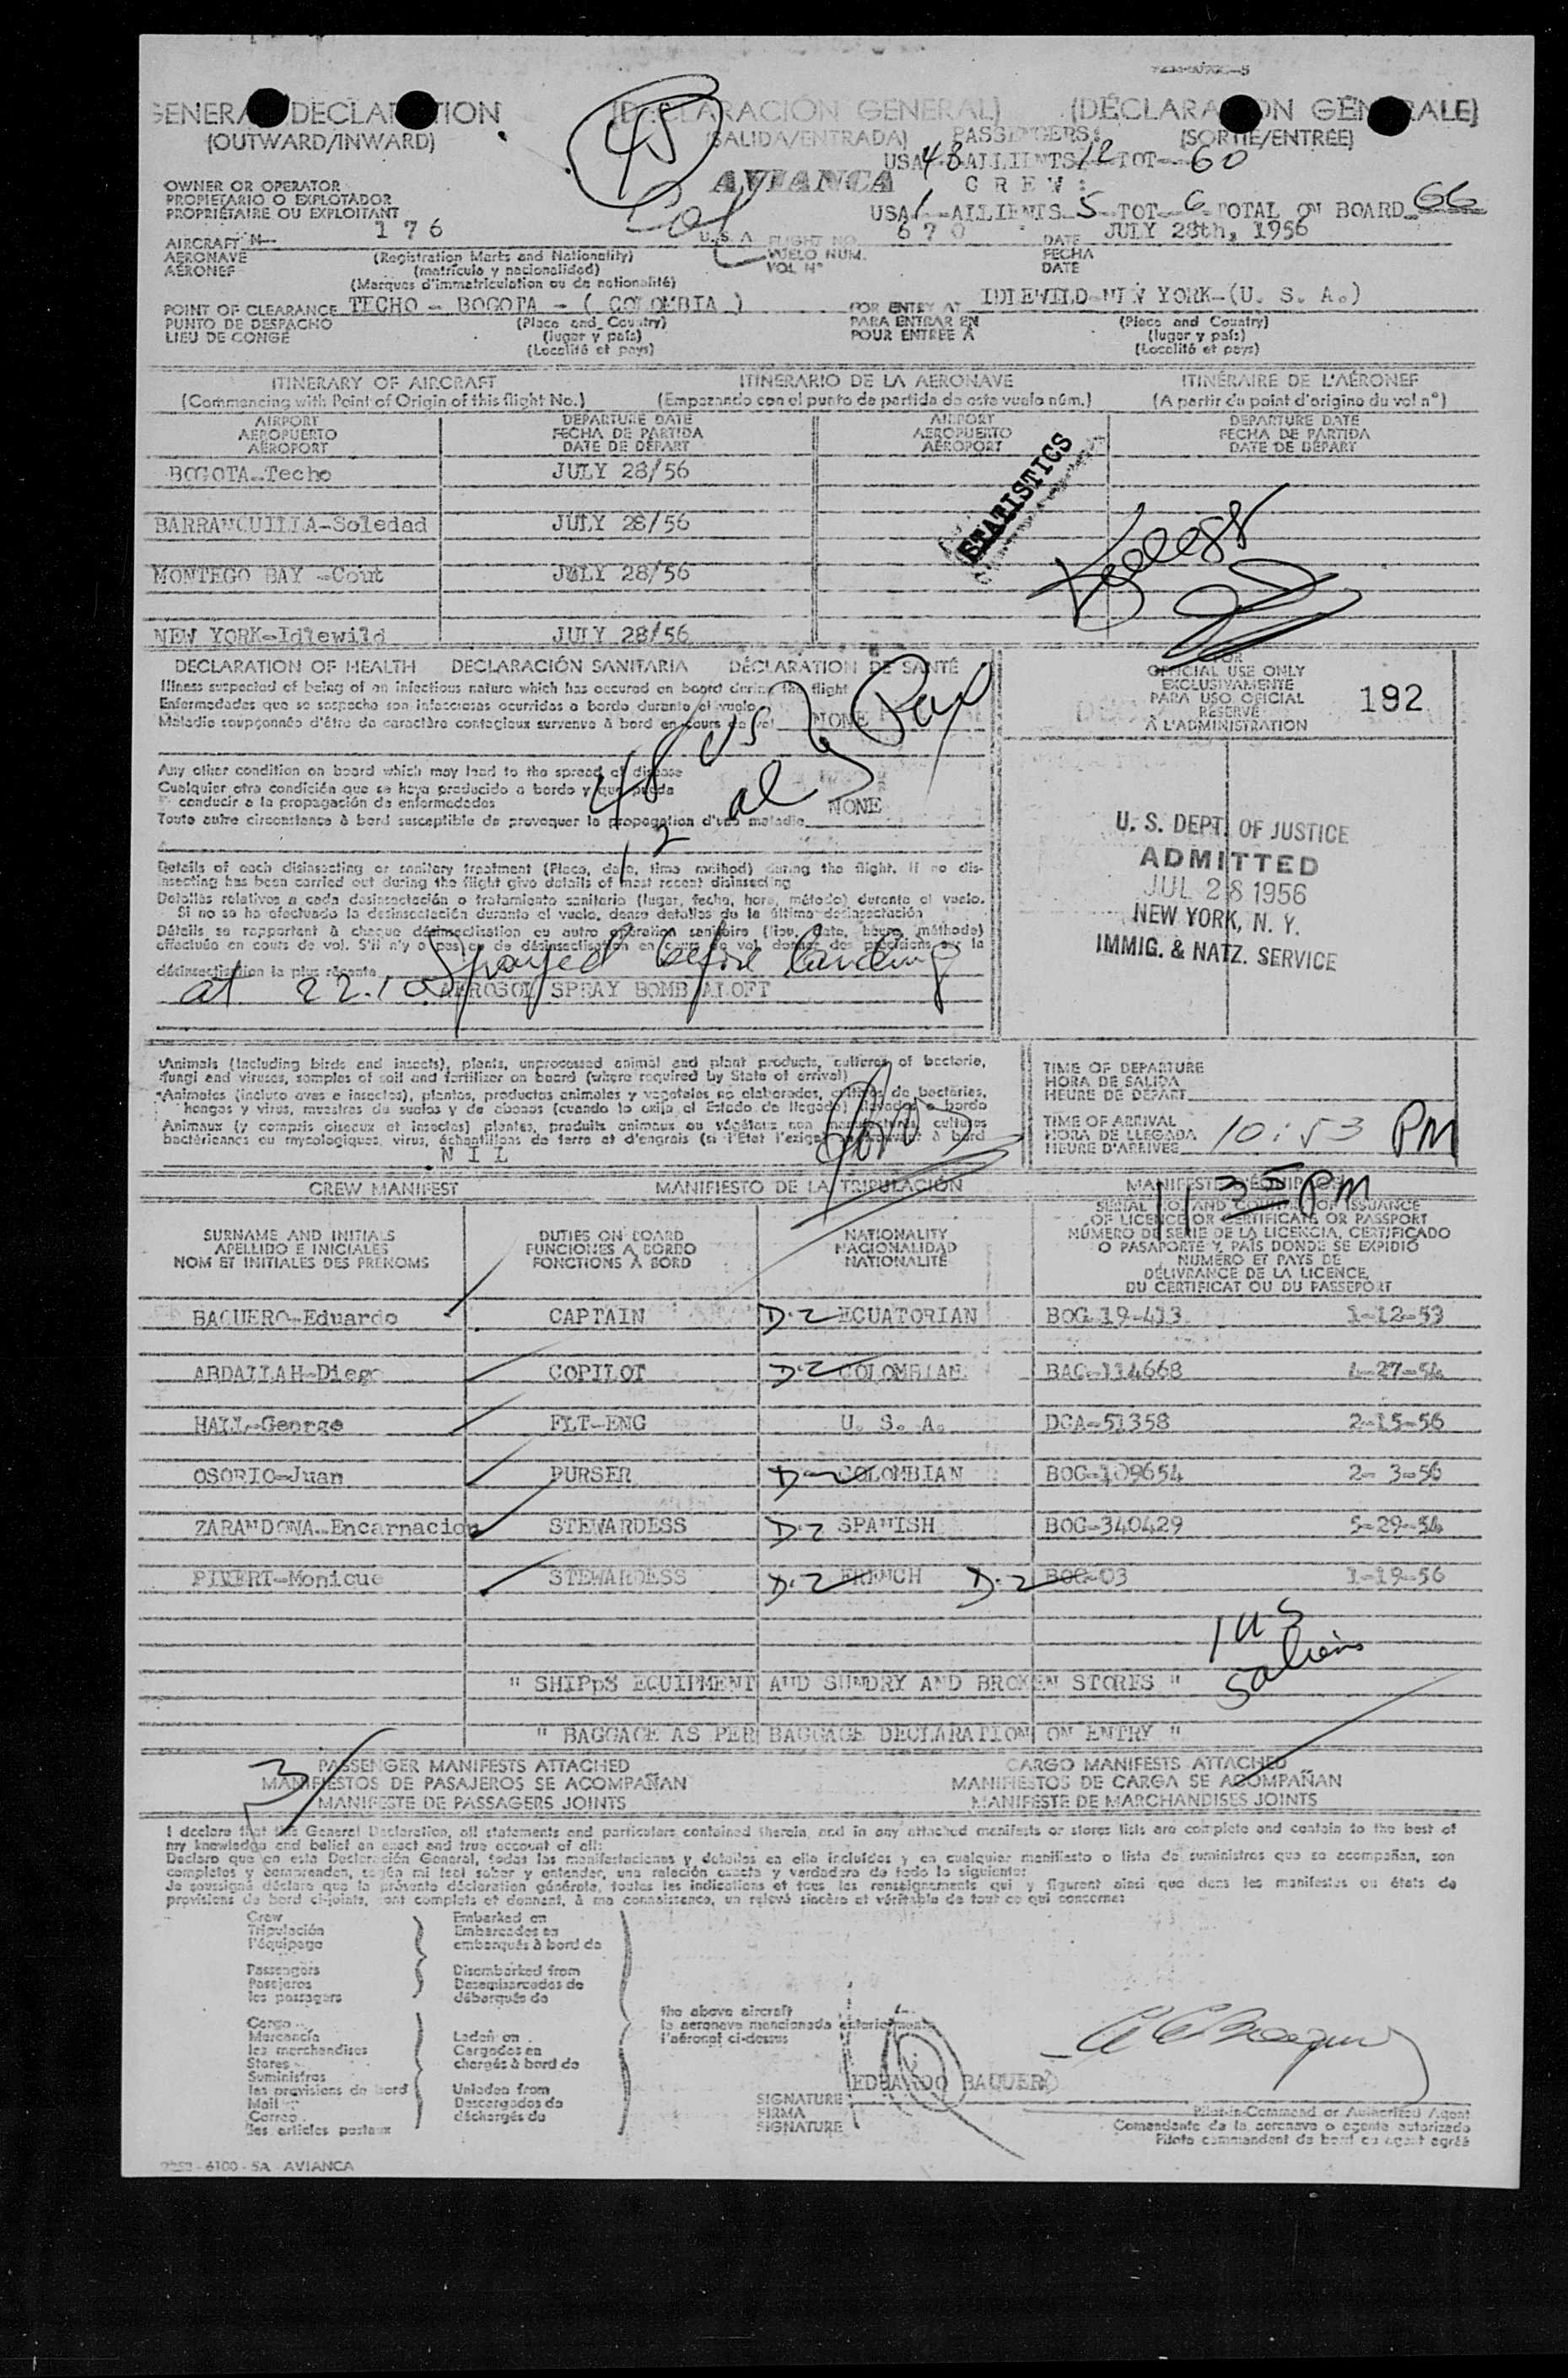 GENERAL DECLARATION (DECLARACIÓN GENERAL) (DÉCLARATION GÉNÉRALE)
(OUTWARD/INWARD) (SALIDA/ENTRADA) (SORTIE/ENTRÉE)
45
PASSENGERS:
USA 48 ALLIENTS 12 TOT 60
AVIANCA
CREW:
USA 1 ALLIENTS 5 TOT 6 TOTAL ON BOARD 66
OWNER OR OPERATOR
PROPIETARIO O EXPLOTADOR
PROPRIÉTAIRE OU EXPLOITANT
Col
AIRCRAFT N- 176 U.S.A FLIGHT NO. 670 DATE JULY 28th, 1956
AERONAVE (Registration Marks and Nationality) VUELO NUM. FECHA
AÉRONEF (matrícula y nacionalidad) VOL Nº DATE
(Marques d'immatriculation ou de nationalité)
POINT OF CLEARANCE TECHO - BOGOTA - ( COLOMBIA ) FOR ENTRY AT IDLEWILD-NEW YORK-(U. S. A.)
PUNTO DE DESPACHO (Place and Country) PARA ENTRAR EN (Place and Country)
LIEU DE CONGÉ (lugar y país) POUR ENTRÉE À (lugar y país)
(Localité et pays) (Localité et pays)
ITINERARY OF AIRCRAFT ITINERARIO DE LA AERONAVE ITINÉRAIRE DE L'AÉRONEF
(Commencing with Point of Origin of this flight No.) (Empezando con el punto de partida de este vuelo núm.) (A partir du point d'origine du vol nº)
AIRPORT DEPARTURE DATE AIRPORT DEPARTURE DATE
AEROPUERTO FECHA DE PARTIDA AEROPUERTO FECHA DE PARTIDA
AÉROPORT DATE DE DÉPART AÉROPORT DATE DE DÉPART
BOGOTA-Techo JULY 28/56
STATISTICS
BARRANQUILLA-Soledad JULY 28/56
MONTEGO BAY -Cout JULY 28/56
NEW YORK-Idlewild JULY 28/56
DECLARATION OF HEALTH DECLARACIÓN SANITARIA DÉCLARATION DE SANTÉ
Illness suspected of being of an infectious nature which has occured on board during the flight
Enfermedades que se sospecha son infecciosas ocurridas a bordo durante el vuelo
Maladie soupçonnée d'être de caractère contagieux survenue à bord en cours de vol NONE
48 US Pax
12 al
FOR
OFFICIAL USE ONLY
EXCLUSIVAMENTE
PARA USO OFICIAL
RESERVÉ
À L'ADMINISTRATION
192
Any other condition on board which may lead to the spread of disease
Cualquier otra condición que se haya producido a bordo y que pueda
conducir a la propagación de enfermedades
Toute autre circonstance à bord susceptible de provoquer la propagation d'une maladie NONE
U. S. DEPT. OF JUSTICE
ADMITTED
JUL 28 1956
NEW YORK, N. Y.
IMMIG. & NATZ. SERVICE
Details of each disinsecting or sanitary treatment (Place, date, time method) during the flight. If no dis-
insecting has been carried out during the flight give details of most recent disinsecting
Detalles relativos a cada desinsectación o tratamiento sanitario (lugar, fecha, hora, método) durante el vuelo.
Si no se ha efectuado la desinsectación durante el vuelo, dense detalles de la última desinsectación
Détails se rapportant à chaque désinsectisation ou autre opération sanitaire (lieu, date, heure, méthode)
effectuée en cours de vol. S'il n'y a pas eu de désinsectisation en cours de vol donner des précisions sur la
désinsectisation la plus récente Sprayed before landing
at 22.10 AEROSOL SPRAY BOMB ALOFT
Animals (Including birds and insects), plants, unprocessed animal and plant products, cultures of bacteria,
fungi and viruses, samples of soil and fertilizer on board (where required by State of arrival)
Animales (incluso aves e insectos), plantas, productos animales y vegetales no elaborados, cultivos de bacterias,
hongos y virus, muestras de suelos y de abonos (cuando lo exija el Estado de llegada) llevados a bordo
Animaux (y compris oiseaux et insectes) plantes, produits animaux ou végétaux non manufacturés, cultures
bactériennes ou mycologiques, virus, échantillons de terre et d'engrais (si l'Etat l'exige) à bord
NIL
TIME OF DEPARTURE
HORA DE SALIDA
HEURE DE DÉPART
TIME OF ARRIVAL
HORA DE LLEGADA
HEURE D'ARRIVÉE 10:53 PM
11 35 PM
CREW MANIFEST MANIFIESTO DE LA TRIPULACIÓN MANIFESTE D'ÉQUIPAGE
SURNAME AND INITIALS DUTIES ON BOARD NATIONALITY
APELLIDO E INICIALES FUNCIONES A BORDO NACIONALIDAD
NOM ET INITIALES DES PRÉNOMS FONCTIONS À BORD NATIONALITÉ
SERIAL NO. AND COUNTRY OF ISSUANCE
OF LICENCE OR CERTIFICATE OR PASSPORT
NÚMERO DE SERIE DE LA LICENCIA, CERTIFICADO
O PASAPORTE Y PAÍS DONDE SE EXPIDIÓ
NUMÉRO ET PAYS DE
DÉLIVRANCE DE LA LICENCE,
DU CERTIFICAT OU DU PASSEPORT
BAQUERO-Eduardo CAPTAIN D-2 ECUATORIAN BOG 19-413 1-12-53
ABDALLAH-Diego COPILOT D-2 COLOMBIAN BAQ-114668 4-27-54
HALL-George FLT-ENG U. S. A. DCA-51358 2-15-56
OSORIO-Juan PURSER D-2 COLOMBIAN BOG-109654 2- 3-56
ZARANDONA-Encarnacion STEWARDESS D-2 SPANISH BOG-340429 5-29-54
PIVERT-Monique STEWARDESS D-2 FRENCH D-2 BOG-03 1-19-56
1 US
5 aliens
" SHIPpS EQUIPMENT AND SUNDRY AND BROKEN STORES "
" BAGGAGE AS PER BAGGAGE DECLARATION ON ENTRY "
3
PASSENGER MANIFESTS ATTACHED CARGO MANIFESTS ATTACHED
MANIFIESTOS DE PASAJEROS SE ACOMPAÑAN MANIFIESTOS DE CARGA SE ACOMPAÑAN
MANIFESTE DE PASSAGERS JOINTS MANIFESTE DE MARCHANDISES JOINTS
I declare that this General Declaration, all statements and particulars contained therein, and in any attached manifests or stores lists are complete and contain to the best of
my knowledge and belief an exact and true account of all:
Declaro que en esta Declaración General, todas las manifestaciones y detalles en ella incluidos y en cualquier manifiesto o lista de suministros que se acompañan, son
completos y comprenden, según mi leal saber y entender, una relación exacta y verdadera de todo lo siguiente:
Je soussigné déclare que la présente déclaration générale, toutes les indications et tous les renseignements qui y figurent ainsi que dans les manifestes ou états de
provisions de bord ci-joints, sont complets et donnent, à ma connaissance, un relevé sincère et véritable de tout ce qui concerne:
Crew Embarked on
Tripulación Embarcados en
l'équipage embarqués à bord de
Passengers Disembarked from
Pasajeros Desembarcados de
les passagers débarqués de
the above aircraft
la aeronave mencionada anteriormente
l'aéronef ci-dessus
Cargo
Mercancía Laden on
les merchandises Cargados en
Stores chargés à bord de
Suministros
les provisions de bord Unladen from
Mail Descargados de
Correo déchargés de
les articles postaux
EDUARDO BAQUERO
SIGNATURE
FIRMA
SIGNATURE
Pilot-in-Command or Authorized Agent
Comandante de la aeronave o agente autorizado
Pilote commandant de bord ou agent agréé
6100 - 5A - AVIANCA